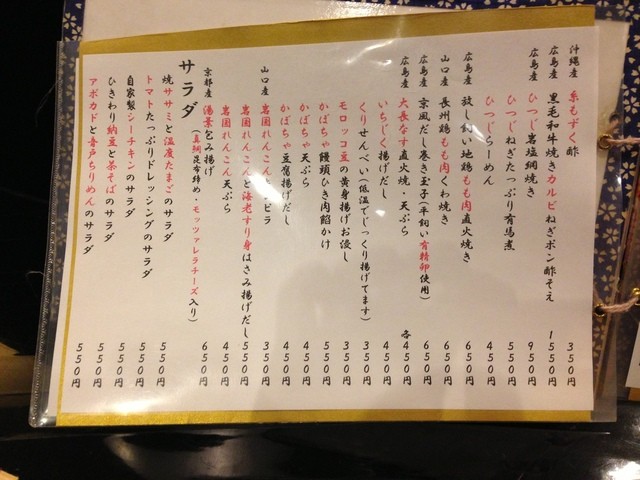 沖縄産 糸もずく酢 350円
広島産 黒毛和牛焼きカルビねぎポン酢そえ 1550円
広島産 ひつじ岩塩網焼き 950円
ひつじねぎたっぷり有馬煮 550円
ひつじらーめん 450円
広島産 放し飼い地鶏もも肉直火焼き 650円
山口産 長州鶏もも肉くわ焼き 650円
広島産 京風だし巻き玉子(平飼い有精卵使用) 650円
広島産 大長なす直火焼・天ぷら 各450円
いちじく揚げだし 450円
くりせんべい(低温でじっくり揚げてます) 350円
モロッコ豆の黄身揚げお浸し 350円
かぼちゃ饅頭ひき肉餡かけ 550円
かぼちゃ天ぷら 450円
かぼちゃ豆腐揚げだし 450円
山口産 岩国れんこんキンピラ 350円
岩国れんこんと海老すり身はさみ揚げだし 550円
岩国れんこん天ぷら 450円
京都産 湯葉包み揚げ 650円
(真鯛昆布炒め・モッツァレラチーズ入り)
サラダ
焼ササミと温度たまごのサラダ 550円
トマトたっぷりドレッシングのサラダ 550円
自家製シーチキンのサラダ 550円
ひきわり納豆と茶そばのサラダ 550円
アボカドと音戸ちりめんのサラダ 550円